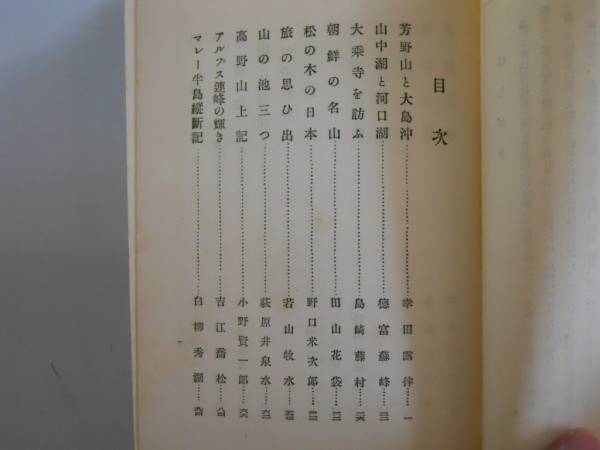 目次
芳野山と大島沖……幸田露伴……一
山中湖と河口湖……德富蘇峰……
大乘寺を訪ふ……島崎藤村……
朝鮮の名山……田山花袋……
松の木の日本……野口米次郎……
旅の思ひ出……若山牧水……
山の池三つ……荻原井泉水……
高野山上記……小野賢一郎……
アルプス連峰の輝き……吉江喬松……
マレー半島縱斷記……白柳秀湖……